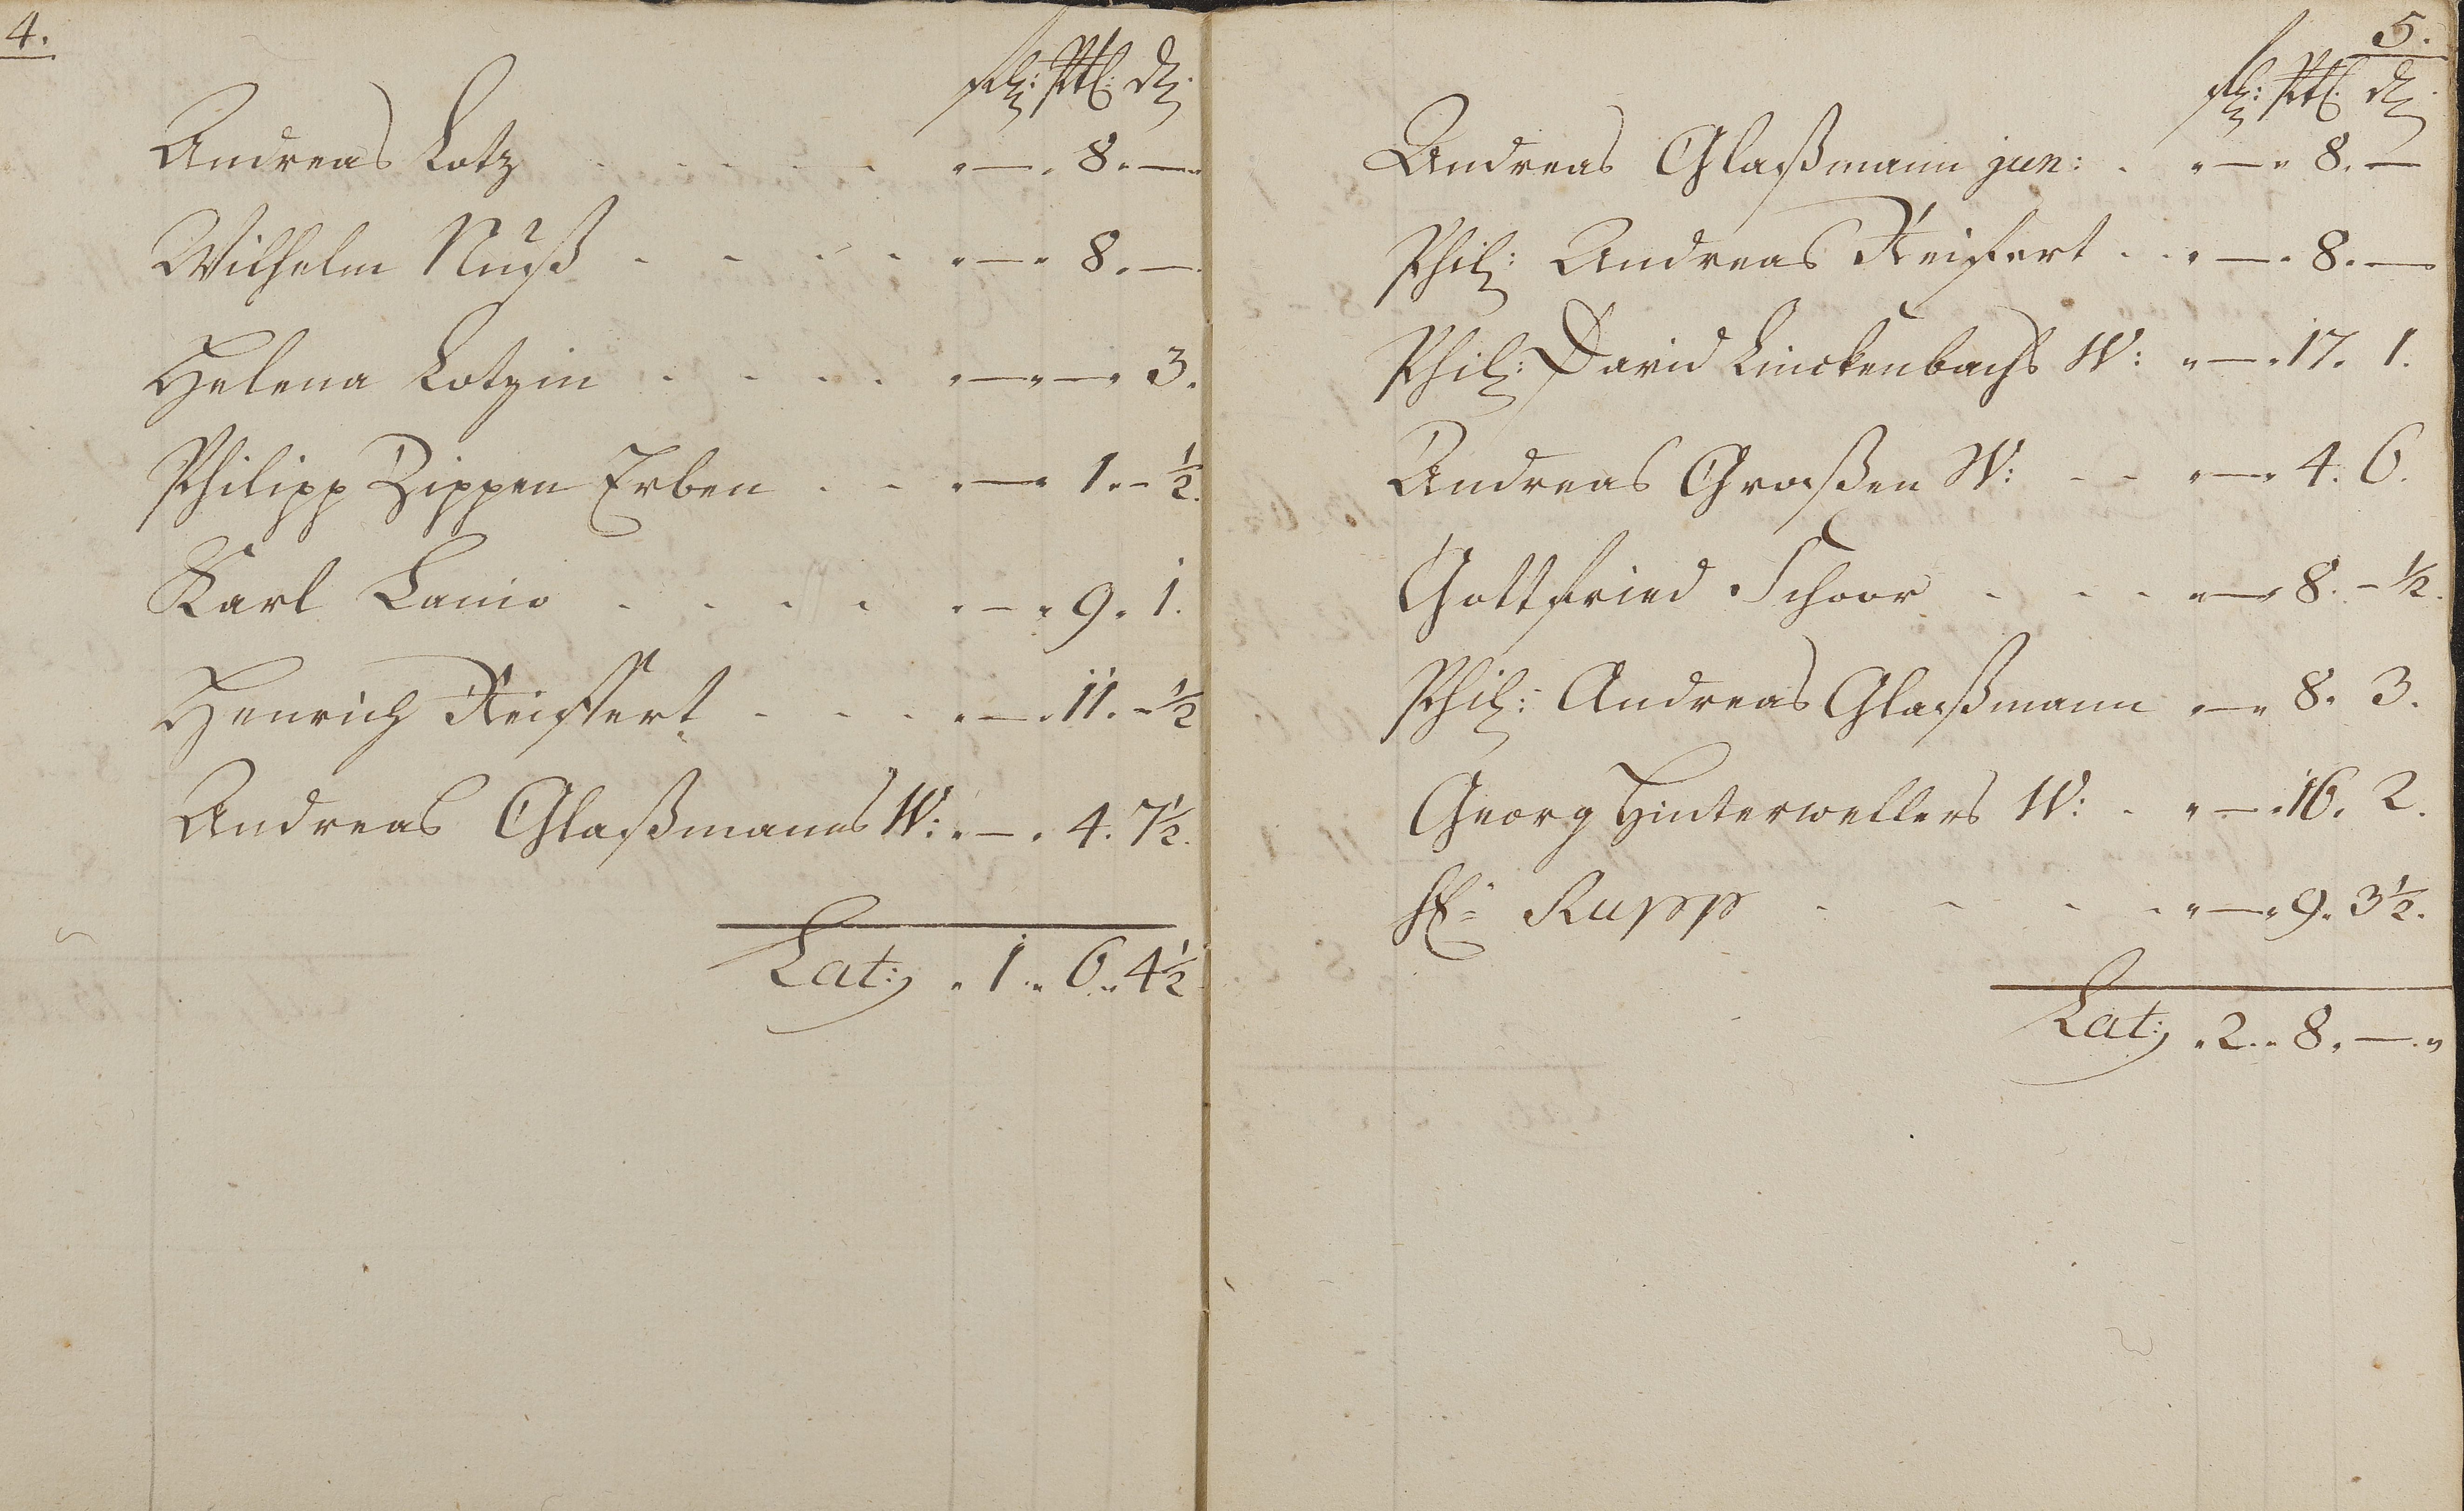 4.
fl: Alb: d:
Andreas Lotz . . . . . „—. 8. —
Wilhelm Nuß - - - - „—„ 8. —
Helena Lotzin . . . . „—„—„ 3.
Philipp Zippen Erben . . „—„ 1. - ½.
Karl Lanio . . . . „—„ 9. 1.
Henrich Reiffert . . . „—. 11. - ½
Andreas Glaßmanns W: „—. 4. 7½.
Lat: „ 1 „ 6 „ 4½
5.
fl: Alb: d:
Andreas Glaßmann jun: . „—„ 8. —
Phil: Andreas Reifert . . „—. 8. —
Phil: David Linckenbachs W: „—. 17. 1.
Andreas Großen W: - - „—„ 4. 6.
Gottfried Schoor - - - „—„ 8. - ½.
Phil: Andreas Glaßmann „—„ 8. 3.
Georg Hinterwellers W: . „—. 16. 2.
H: Rupp - - - - „—„ 9. 3½.
Lat: „ 2 „ 8. — „